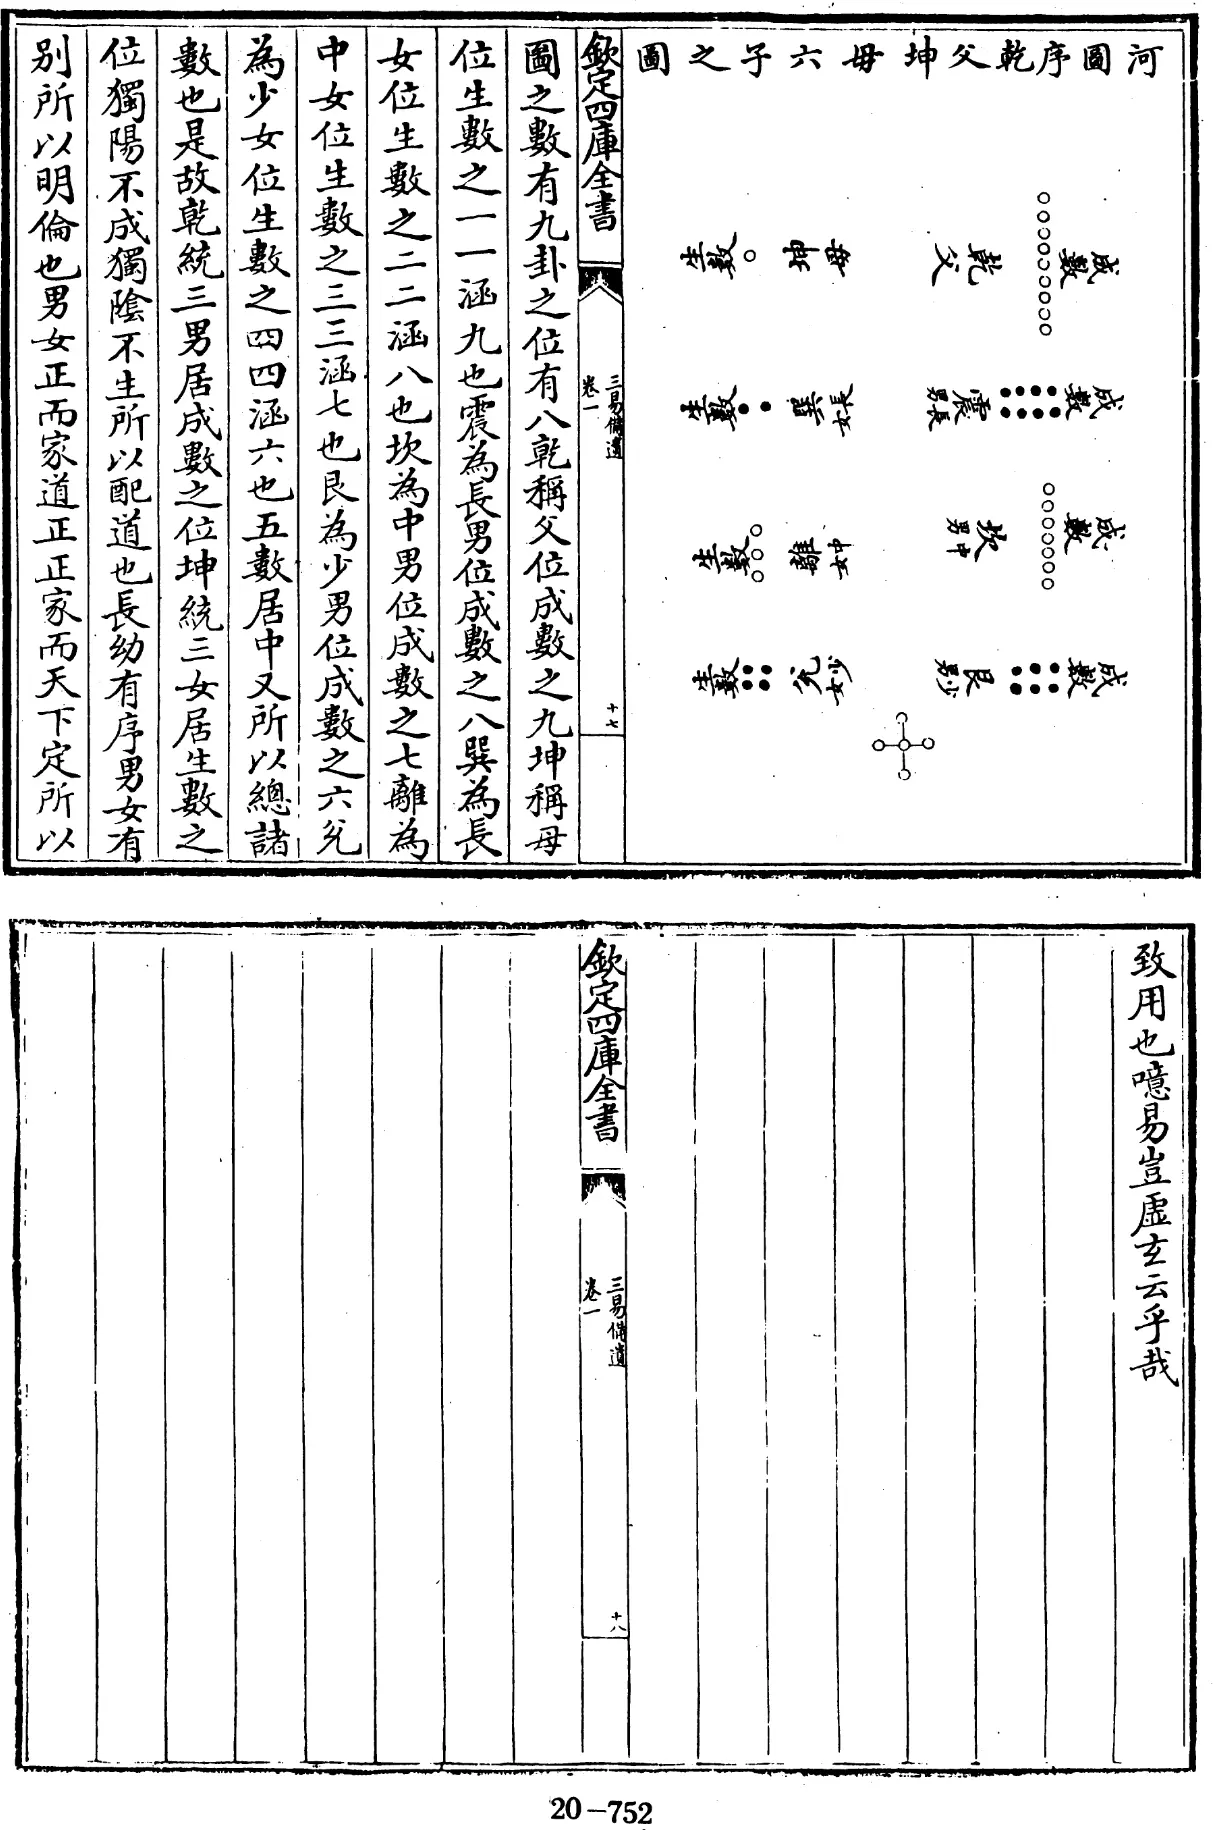 河圖序乾父坤母六子之圖
成數
乾父
母坤
生數
成數
震長男
長女巽
生數
成數
坎中男
中女離
生數
成數
艮少男
少女兌
生數
欽定四庫全書
三易備遺
卷一
十七
圖之數有九卦之位有八乾稱父位成數之九坤稱母
位生數之一一涵九也震為長男位成數之八巽為長
女位生數之二二涵八也坎為中男位成數之七離為
中女位生數之三三涵七也艮為少男位成數之六兌
為少女位生數之四四涵六也五數居中又所以總諸
數也是故乾統三男居成數之位坤統三女居生數之
位獨陽不成獨陰不生所以配道也長幼有序男女有
别所以明倫也男女正而家道正正家而天下定所以
致用也噫易豈虛玄云乎哉
欽定四庫全書
三易備遺
卷一
十八
20-752